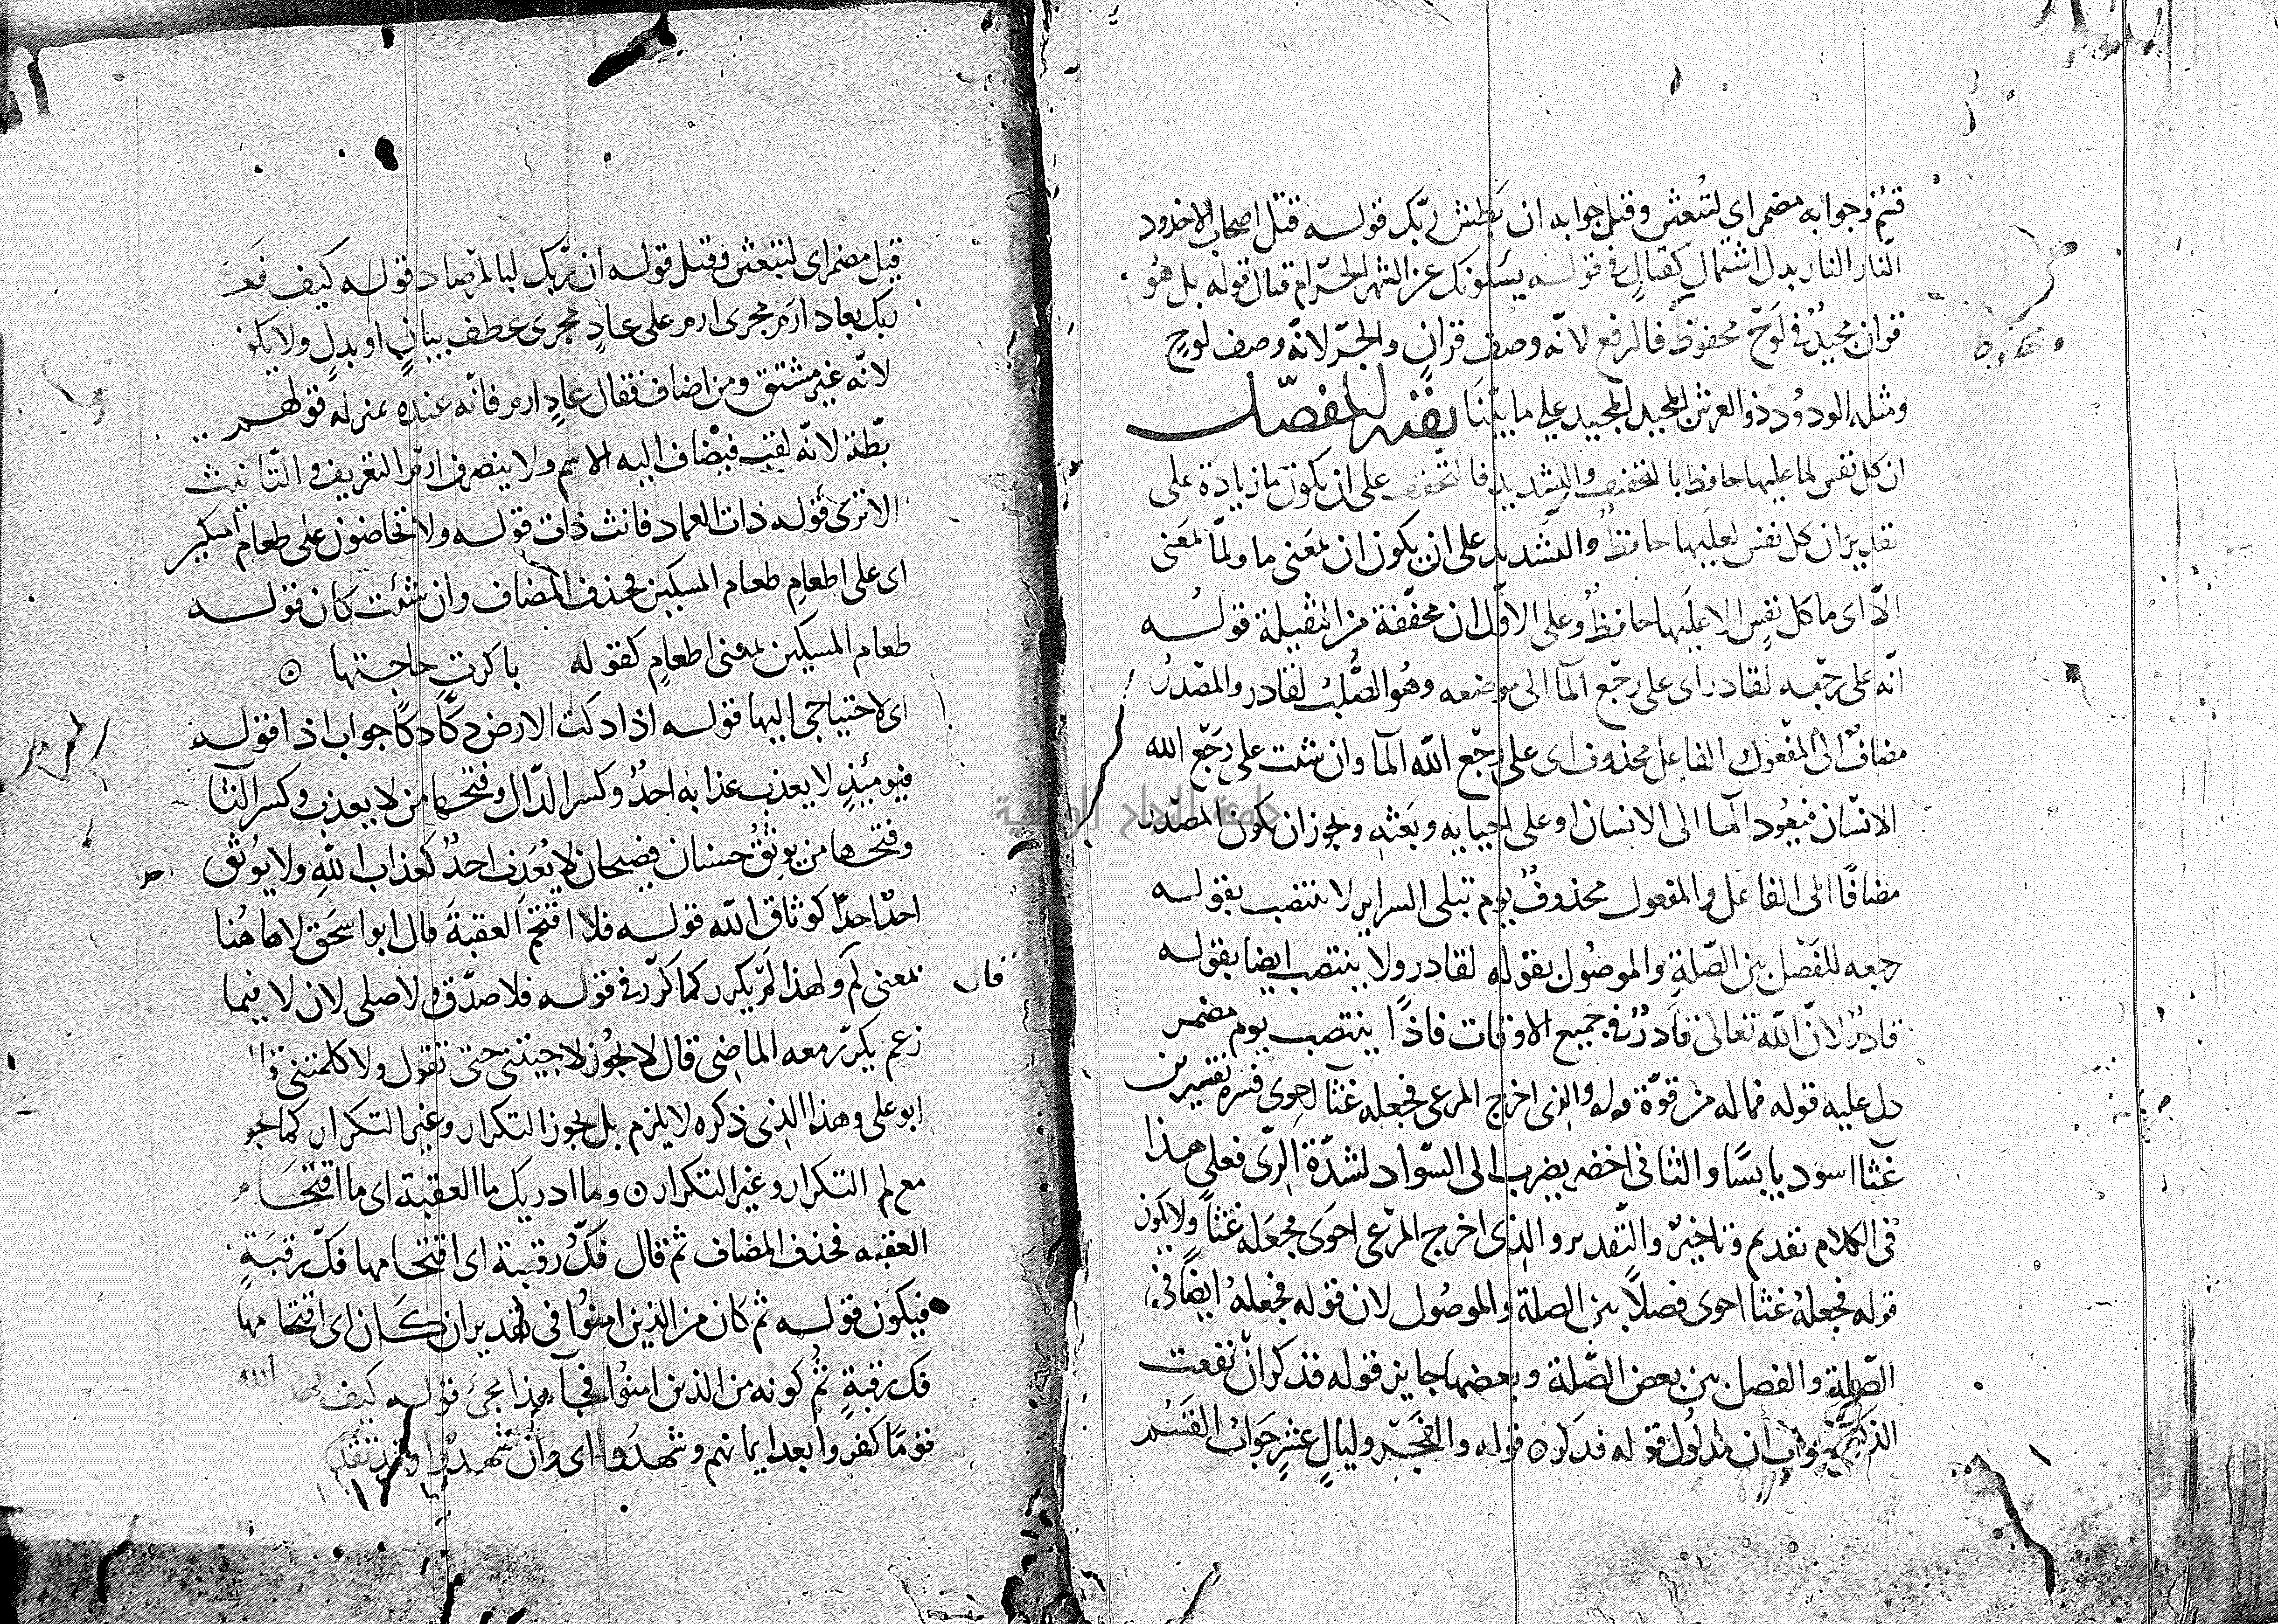 قسم وجوابه مضمر اي لتبعثن وقيل جوابه ان بطش ربك قوله قتل اصحاب الاخدود
النار النار بدل اشتمال كقتال في قوله يسئلونك عن الشهر الحرام قتال قوله بل هو
قران مجيد في لوح محفوظ فالرفع لانه وصف قران والجر لانه وصف لوح
ومثله الودود ذو العرش المجيد المجيد علي ما بينا بقية المفصل
ان كل نفس لما عليها حافظ بالتخفيف والتشديد فالتخفيف على ان يكون ما زيادة على
تقدير ان كل نفس لعليها حافظ والتشديد على ان يكون ان بمعنى ما ولما بمعنى
الا اى ما كل نفس الا عليها حافظ وعلى الاول ان مخففة من الثقيلة قوله
انه على رجعه لقادر اى على رجع الما الى موضعه وهو الصلب لقادر والمصدر
مضاف الى المفعول الفاعل محذوف اى على رجع الله الما وان شئت على رجع الله
الانسان فيعود الما الى الانسان او على احيايه وبعثه ويجوز ان يكون المصدر
مضافا الى الفاعل والمفعول محذوف يوم تبلى السراير لا ينتصب بقوله
رجعه للفصل بين الصلة والموصول بقوله لقادر ولا ينتصب ايضا بقوله
قادر لان الله تعالى قادر في جميع الاوقات فاذا ينتصب يوم مضمر
دل عليه قوله فماله من قوة قوله والذى اخرج المرعى فجعله غثا احوى فسره تفسيرين
غثا اسود يابسا والثانى اخضر يضرب الى السواد لشدة الرى فعلى هذا
فى الكلام تقديم وتاخير والتقدير والذى اخرج المرعى احوى فجعله غثا ولا يكون
قوله فجعله غثا احوى فصلا بين الصلة والموصول لان قوله فجعله ايضا في
الصلة والفصل بين بعض الصلة وبعضها جايز قوله فذكر ان نفعت
الذكرى جواب ان مدلول قوله فذكر قوله والفجر وليال عشر جواب القسم
قيل مضمر اى لتبعثن وقيل قوله ان ربك لبالمرصاد قوله كيف فعل
ربك بعاد ارم مجرى ارم على عاد مجرى عطف بيان او بدل ولا يكون
لانه غير مشتق ومن اضاف فقال عاد ارم فانه عنده بمنزله قولهم
بطة لانه لقب فيضاف اليه الاسم ولا ينصرف ارم التعريف والتانيث
الا ترى قوله ذات العماد فانث ذات قوله ولا تحاضون على طعام المسكين
اى على اطعام طعام المسكين فحذف المضاف وان شئت كان قوله
طعام المسكين بمعنى اطعام كقوله باكرت حاجتها
اى لاحتياجى اليها قوله اذا دكت الارض دكا دكا جواب اذا قوله
فيومئذ لا يعذب عذابه احد وكسر الدال وفتحها من لا يعذب وكسر الثا
وفتحها من يوثق حسنان فصيحان لا يعذب احد كعذاب الله ولا يوثق
احد احدا كوثاق الله قوله فلا اقتحم العقبة قال ابو اسحق لا هاهنا
بمعنى لم ولهذا لم يكرر كما كرر في قوله فلا صدق ولا صلى لان لا فيما
قال
زعم يكرر معه الماضى قال لا يجوز لا جيتنى حتى تقول ولا كلمتنى قال
ابو على وهذا الذى ذكره لا يلزم بل يجوز التكرار وغير التكرار كما يجوز
مع لم التكرار وغير التكرار وما ادريك ما العقبة اى ما اقتحام
العقبه فحذف المضاف ثم قال فك رقبة اى اقتحامها فك رقبة
فيكون قوله ثم كان من الذين امنوا فى تقدير ان كان اى اقتحامها
فك رقبة ثم كونه من الذين امنوا فجآ هذا مجئ قوله كيف يهدى الله
قوما كفروا بعد ايمانهم وشهدوا اى وان شهدوا وقد تقدم